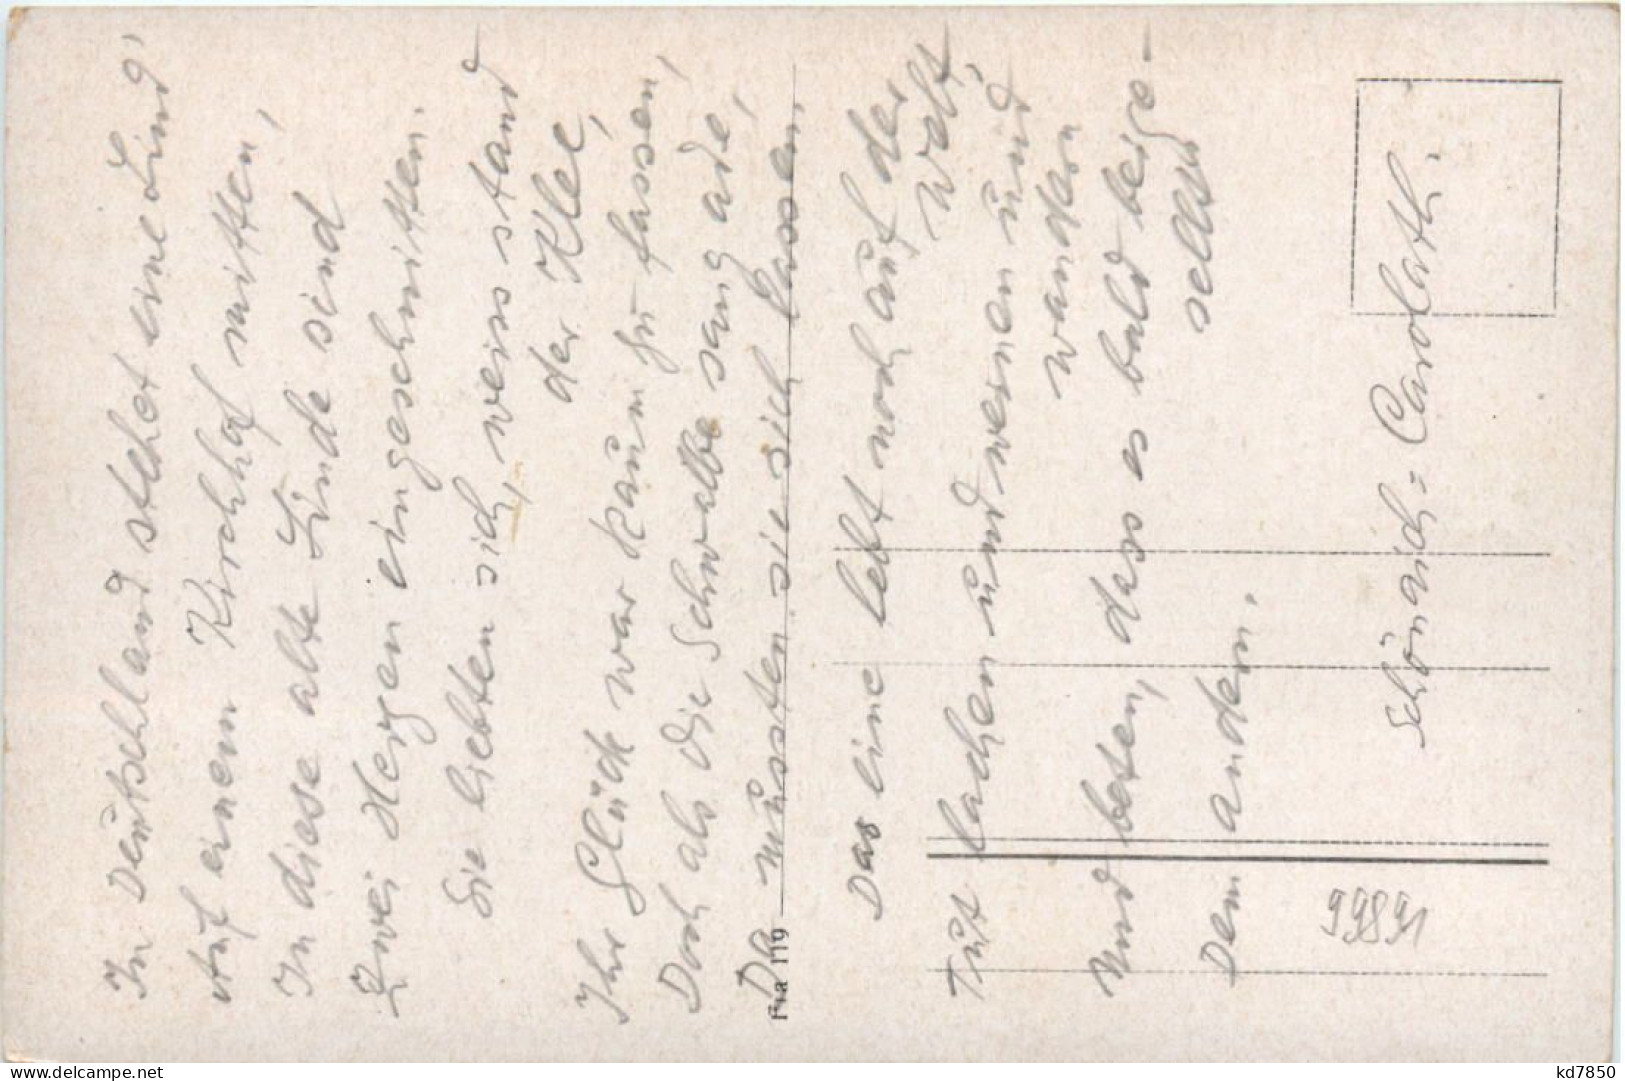 In Deutschland stehet eine Lind',
Auf einem Kirchhof mitten,
In diese alte Linde sind
Zwei Herzen eingeschnitten.
Sie liebten sich, weiss stand
der Klee,
Ihr Glück war kaum zu fassen,
Doch als die Schwalbe sang ade,
Da mussten sie sich lassen.
Das eine lebt noch auf der
Welt,
Tut lachen und weinen und
wandern
Und beten, dass es bald beige-
sellt
Dem andern.
Schönaich-Carolath.
99891
Fia 119
www.delcampe.net
kd7850